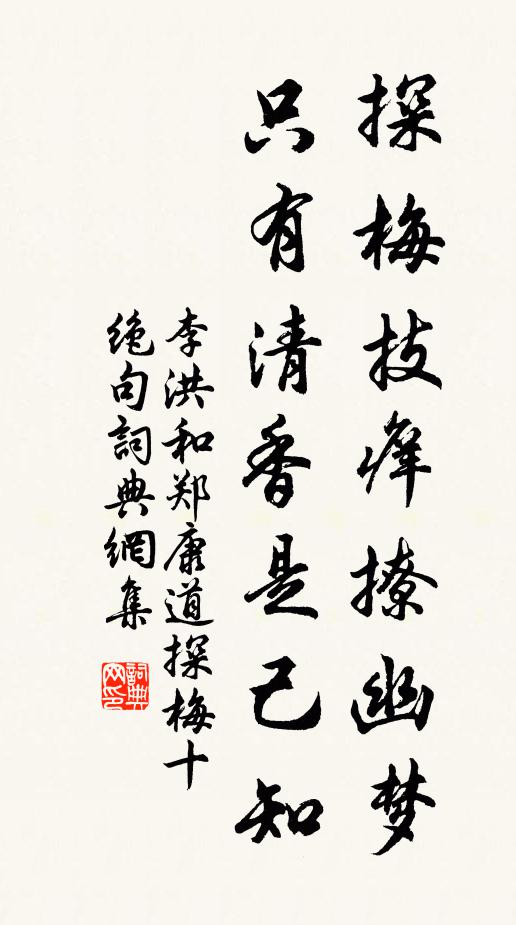 探梅技痒撩幽梦
只有清香是己知
李洪和郑康道探梅十
绝句詞典網集
詞典网印